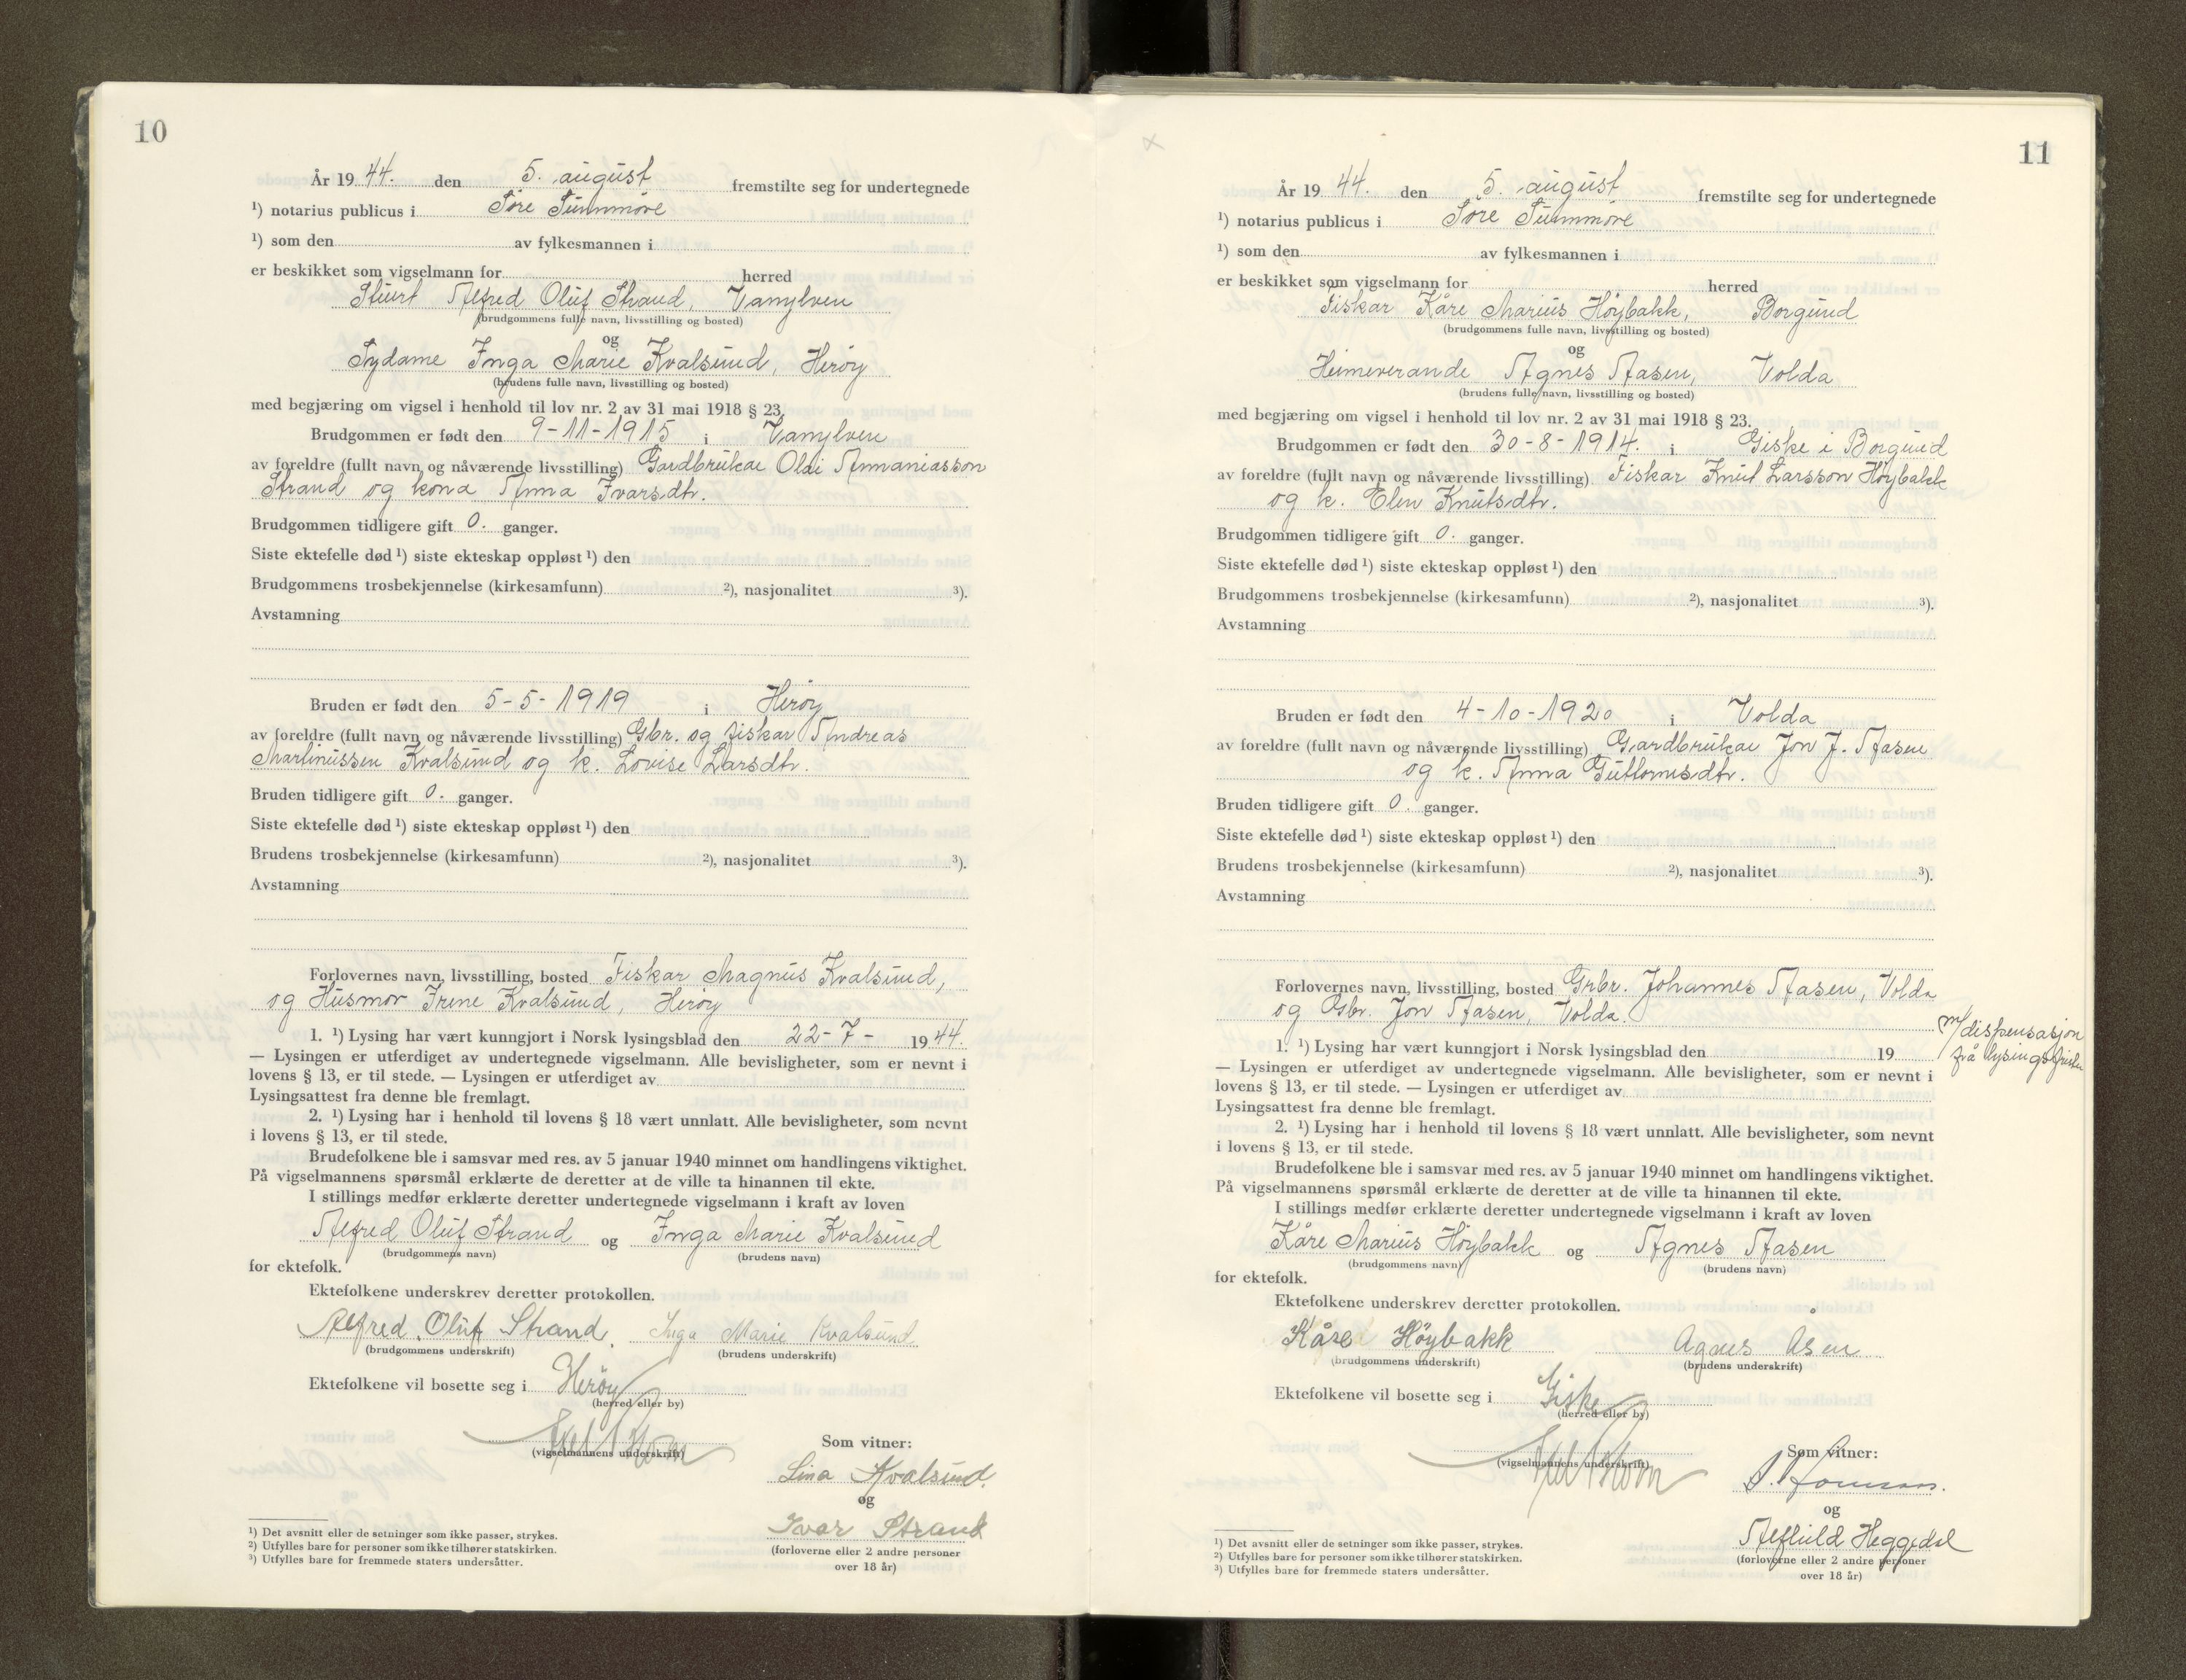 10
År 19 44. den 5. august fremstilte seg for undertegnede
¹) notarius publicus i Söre Sunnmöre
¹) som den av fylkesmannen i
er beskikket som vigselmann for herred
Stuert Alfred Oluf Strand, Vanylven
(brudgommens fulle navn, livsstilling og bosted)
og
Sydame Inga Marie Kvalsund, Heröy
(brudens fulle navn, livsstilling og bosted)
med begjæring om vigsel i henhold til lov nr. 2 av 31 mai 1918 § 23.
Brudgommen er født den 9-11-1915 i Vanylven
av foreldre (fullt navn og nåværende livsstilling) Gardbrukar Olai Annaniasson
Strand og kona Anna Ivarsdtr.
Brudgommen tidligere gift 0. ganger.
Siste ektefelle død ¹) siste ekteskap oppløst ¹) den
Brudgommens trosbekjennelse (kirkesamfunn) ²), nasjonalitet ³).
Avstamning
Bruden er født den 5-5-1919 i Heröy
av foreldre (fullt navn og nåværende livsstilling) Gbr. og fiskar Andreas
Martinussen Kvalsund og k. Lovise Larsdtr.
Bruden tidligere gift 0. ganger.
Siste ektefelle død ¹) siste ekteskap oppløst ¹) den
Brudens trosbekjennelse (kirkesamfunn) ²), nasjonalitet ³).
Avstamning
Forlovernes navn, livsstilling, bosted Fiskar Magnus Kvalsund,
og Husmor Irene Kvalsund, Heröy
1. ¹) Lysing har vært kunngjort i Norsk lysingsblad den 22-7- 1944.
— Lysingen er utferdiget av undertegnede vigselmann. Alle bevisligheter, som er nevnt i
lovens § 13, er til stede. — Lysingen er utferdiget av
Lysingsattest fra denne ble fremlagt.
2. ¹) Lysing har i henhold til lovens § 18 vært unnlatt. Alle bevisligheter, som nevnt
i lovens § 13, er til stede.
Brudefolkene ble i samsvar med res. av 5 januar 1940 minnet om handlingens viktighet.
På vigselmannens spørsmål erklærte de deretter at de ville ta hinannen til ekte.
I stillings medfør erklærte deretter undertegnede vigselmann i kraft av loven
Alfred Oluf Strand og Inga Marie Kvalsund
(brudgommens navn) (brudens navn)
for ektefolk.
Ektefolkene underskrev deretter protokollen.
Alfred Oluf Strand. Inga Marie Kvalsund
(brudgommens underskrift) (brudens underskrift)
Ektefolkene vil bosette seg i Heröy
(herred eller by)
(vigselmannens underskrift)
Som vitner:
Lina Kvalsund.
og
Ivar Strand
(forloverne eller 2 andre personer
over 18 år)
¹) Det avsnitt eller de setninger som ikke passer, strykes.
²) Utfylles bare for personer som ikke tilhører statskirken.
³) Utfylles bare for fremmede staters undersåtter.
11
År 19 44. den 5. august fremstilte seg for undertegnede
¹) notarius publicus i Söre Sunnmöre
¹) som den av fylkesmannen i
er beskikket som vigselmann for herred
Fiskar Kåre Marius Höybakk, Borgund
(brudgommens fulle navn, livsstilling og bosted)
og
Heimeverande Agnes Aasen, Volda
(brudens fulle navn, livsstilling og bosted)
med begjæring om vigsel i henhold til lov nr. 2 av 31 mai 1918 § 23.
Brudgommen er født den 30-8-1914. i Giske i Borgund
av foreldre (fullt navn og nåværende livsstilling) Fiskar Knut Larsson Höybakk
og k. Elen Knutsdtr.
Brudgommen tidligere gift 0. ganger.
Siste ektefelle død ¹) siste ekteskap oppløst ¹) den
Brudgommens trosbekjennelse (kirkesamfunn) ²), nasjonalitet ³).
Avstamning
Bruden er født den 4-10-1920 i Volda
av foreldre (fullt navn og nåværende livsstilling) Gardbrukar Jon J. Aasen
og k. Anna Guttormsdtr.
Bruden tidligere gift 0. ganger.
Siste ektefelle død ¹) siste ekteskap oppløst ¹) den
Brudens trosbekjennelse (kirkesamfunn) ²), nasjonalitet ³).
Avstamning
Forlovernes navn, livsstilling, bosted Grbr. Johannes Aasen, Volda
og Gbr. Jon Aasen, Volda.
m/dispensasjon
frå lysingsfristen
1. ¹) Lysing har vært kunngjort i Norsk lysingsblad den 19
— Lysingen er utferdiget av undertegnede vigselmann. Alle bevisligheter, som er nevnt i
lovens § 13, er til stede. — Lysingen er utferdiget av
Lysingsattest fra denne ble fremlagt.
2. ¹) Lysing har i henhold til lovens § 18 vært unnlatt. Alle bevisligheter, som nevnt
i lovens § 13, er til stede.
Brudefolkene ble i samsvar med res. av 5 januar 1940 minnet om handlingens viktighet.
På vigselmannens spørsmål erklærte de deretter at de ville ta hinannen til ekte.
I stillings medfør erklærte deretter undertegnede vigselmann i kraft av loven
Kåre Marius Höybakk og Agnes Aasen
(brudgommens navn) (brudens navn)
for ektefolk.
Ektefolkene underskrev deretter protokollen.
Kåre Höybakk Agnes Åsen
(brudgommens underskrift) (brudens underskrift)
Ektefolkene vil bosette seg i Giske
(herred eller by)
(vigselmannens underskrift)
Som vitner:
og
Alfhild Heggedal
(forloverne eller 2 andre personer
over 18 år)
¹) Det avsnitt eller de setninger som ikke passer, strykes.
²) Utfylles bare for personer som ikke tilhører statskirken.
³) Utfylles bare for fremmede staters undersåtter.